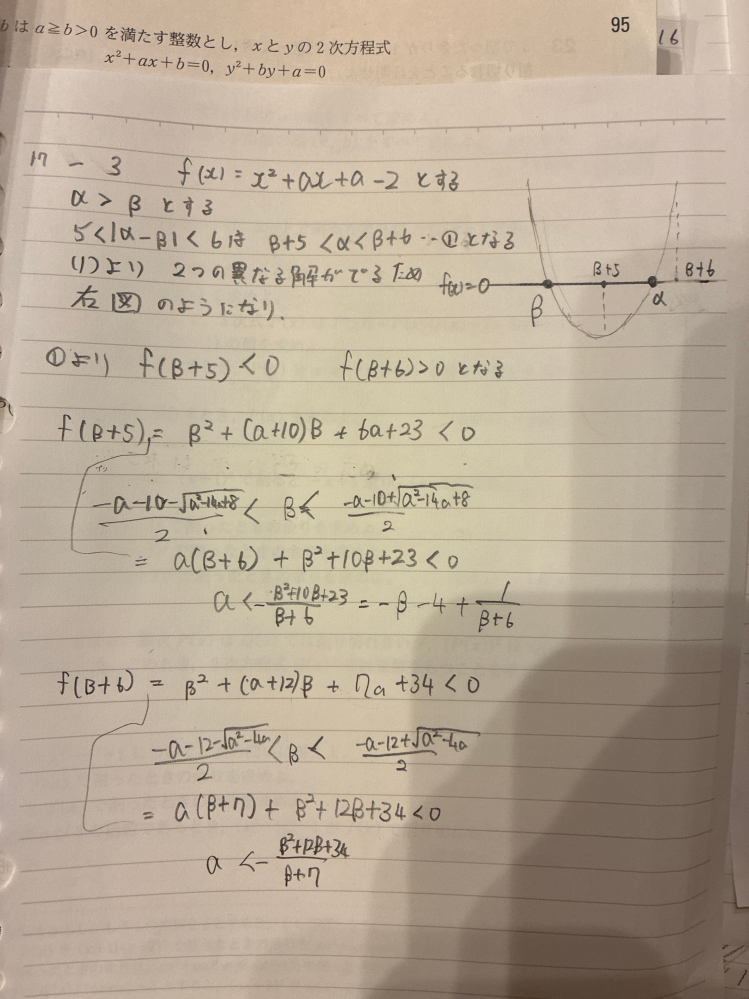 bはa≧b>0を満たす整数とし，xとyの2次方程式
x²+ax+b=0, y²+by+a=0
95
16
17-3 f(x)=x²+ax+a-2とする
α>βとする
5<|α-β|<6は β+5<α<β+6…①となる
(1)より 2つの異なる解がでるため
右図のようになり.
f(x)=0
β
β+5
α
β+6
①より f(β+5)<0 f(β+6)>0となる
f(β+5)=β²+(a+10)β+6a+23<0
(-a-10-√(a²-14a+8))/2<β<(-a-10+√(a²-14a+8))/2
=a(β+6)+β²+10β+23<0
a<-(β²+10β+23)/(β+6)=-β-4+1/(β+6)
f(β+6)=β²+(a+12)β+7a+34<0
(-a-12-√(a²-4a))/2<β<(-a-12+√(a²-4a))/2
=a(β+7)+β²+12β+34<0
a<-(β²+12β+34)/(β+7)